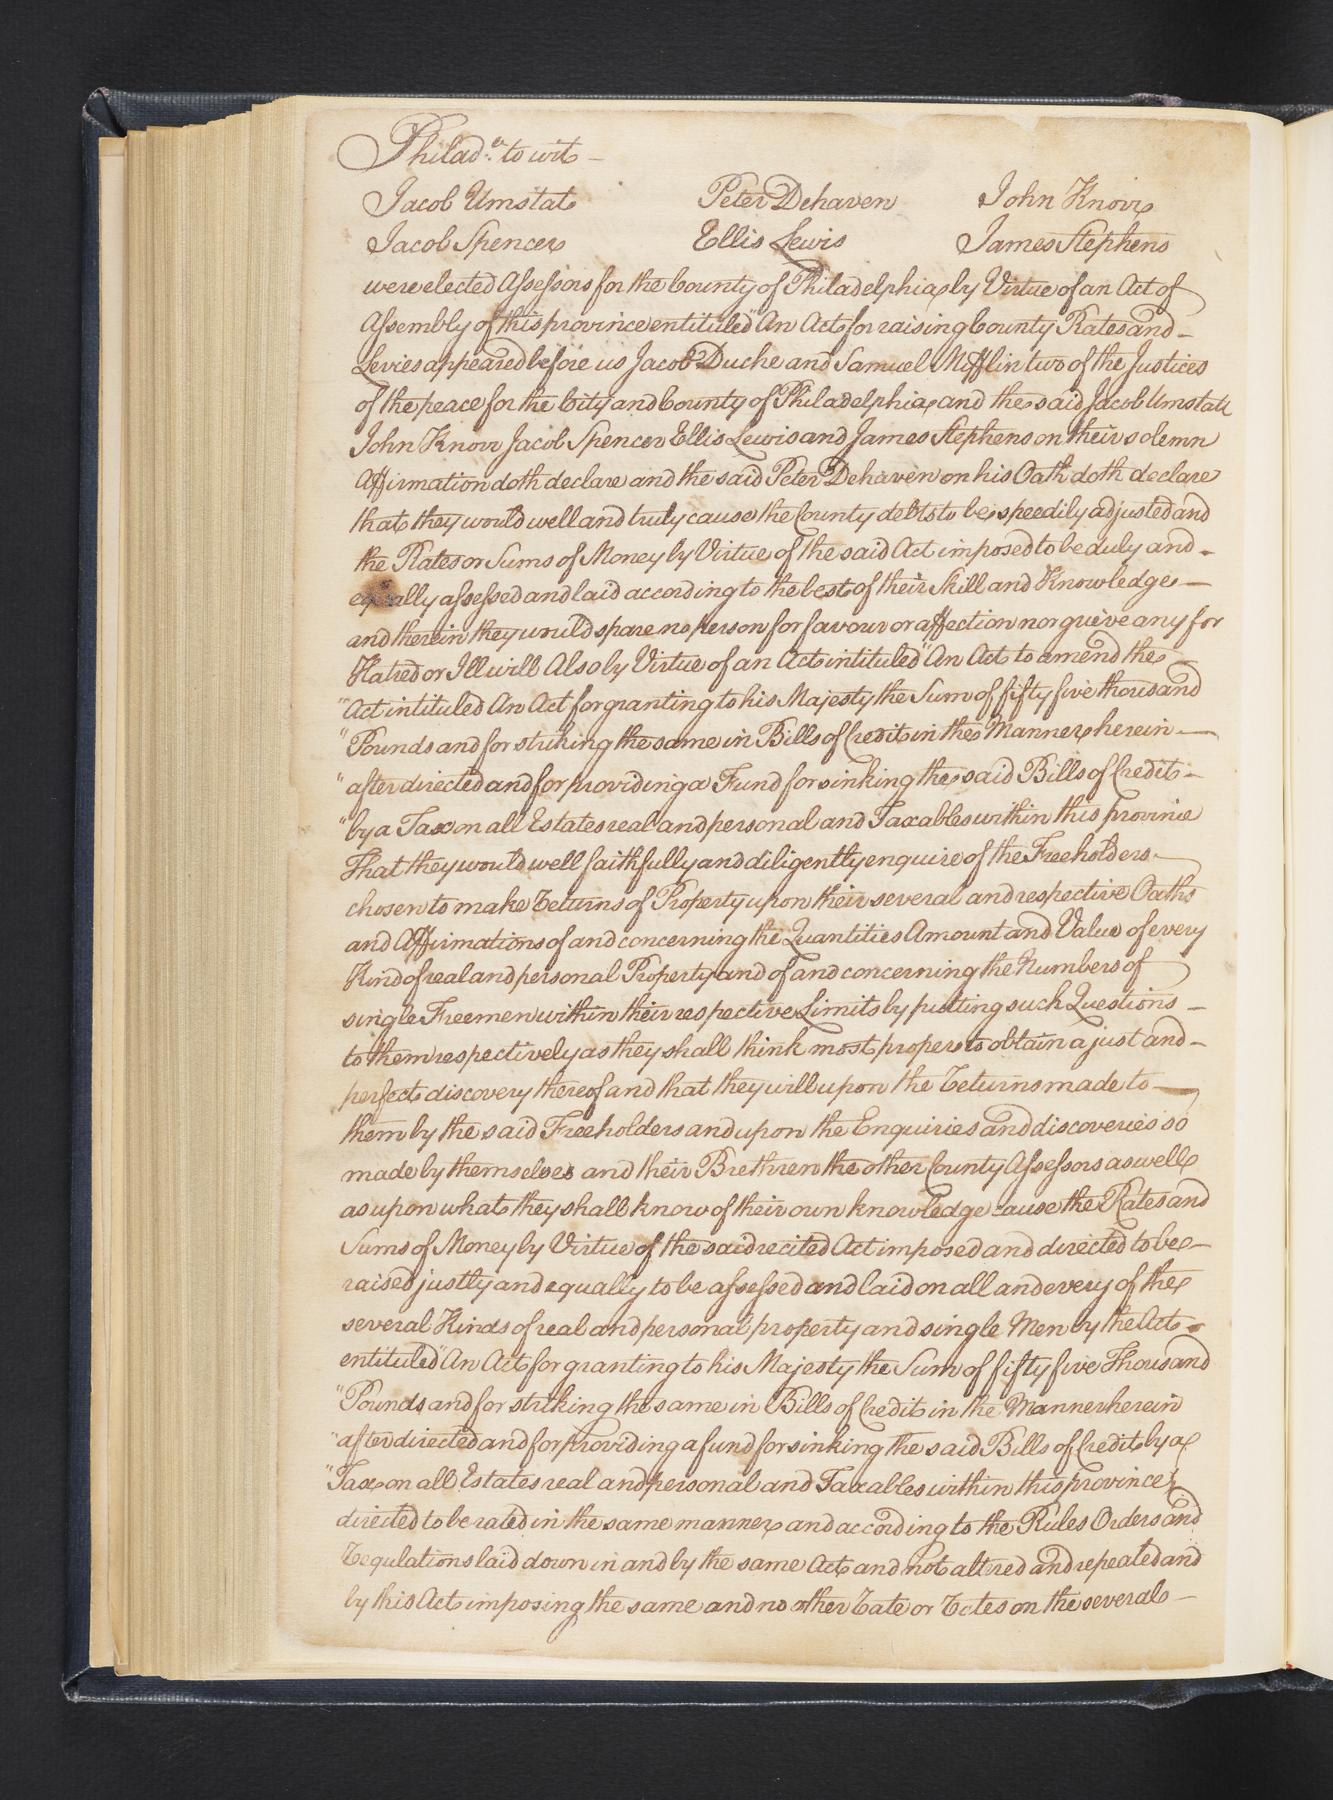 Philad.a to wit —
Jacob Umstat Peter Dehaven John Knorr
Jacob Spencer Ellis Lewis James Stephens
were elected Assessors for the County of Philadelphia by Virtue of an Act of
Assembly of this province entituled "An Act for raising County Rates and —
Levies appeared before us Jacob Duche and Samuel Mifflin two of the Justices
of the peace for the City and County of Philadelphia and the said Jacob Umstatt
John Knorr Jacob Spencer Ellis Lewis and James Stephens on their solemn
Affirmation doth declare and the said Peter Dehaven on his Oath doth declare
that they would well and truly cause the County debts to be speedily adjusted and
the Rates or Sums of Money by Virtue of the said Act imposed to be duly and —
equally assessed and laid according to the best of their Skill and Knowledge —
and therein they would spare no person for favour or affection nor grieve any for
Hatred or Ill will Also by Virtue of an Act intituled "An Act to amend the —
"Act intituled An Act for granting to his Majesty the Sum of fifty five thousand
"Pounds and for striking the same in Bills of Credit in the Manner herein —
"after directed and for providing a Fund for sinking the said Bills of Credit —
"by a Tax on all Estates real and personal and Taxables within this province
That they would well faithfully and diligently enquire of the Freeholders
chosen to make Returns of Property upon their several and respective Oaths
and Affirmations of and concerning the Quantities Amount and Value of every
Kind of real and personal Property and of and concerning the Numbers of
single Freemen within their respective Limits by putting such Questions —
to them respectively as they shall think most proper to obtain a just and —
perfect discovery thereof and that they will upon the Returns made to —
them by the said Freeholders and upon the Enquiries and discoveries so
made by themselves and their Brethren the other County Assessors as well
as upon what they shall know of their own knowledge cause the Rates and
Sums of Money by Virtue of the said recited Act imposed and directed to be —
raised justly and equally to be assessed and laid on all and every of the
several Kinds of real and personal property and single Men by the Act —
entituled "An Act for granting to his Majesty the Sum of fifty five Thousand
"Pounds and for striking the same in Bills of Credit in the Manner herein
"after directed and for providing a fund for sinking the said Bills of Credit by a
"Tax on all Estates real and personal and Taxables within this province
directed to be rated in the same manner and according to the Rules Orders and
Regulations laid down in and by the same Act and not altered and repealed and
by this Act imposing the same and no other Rate or Rates on the several —